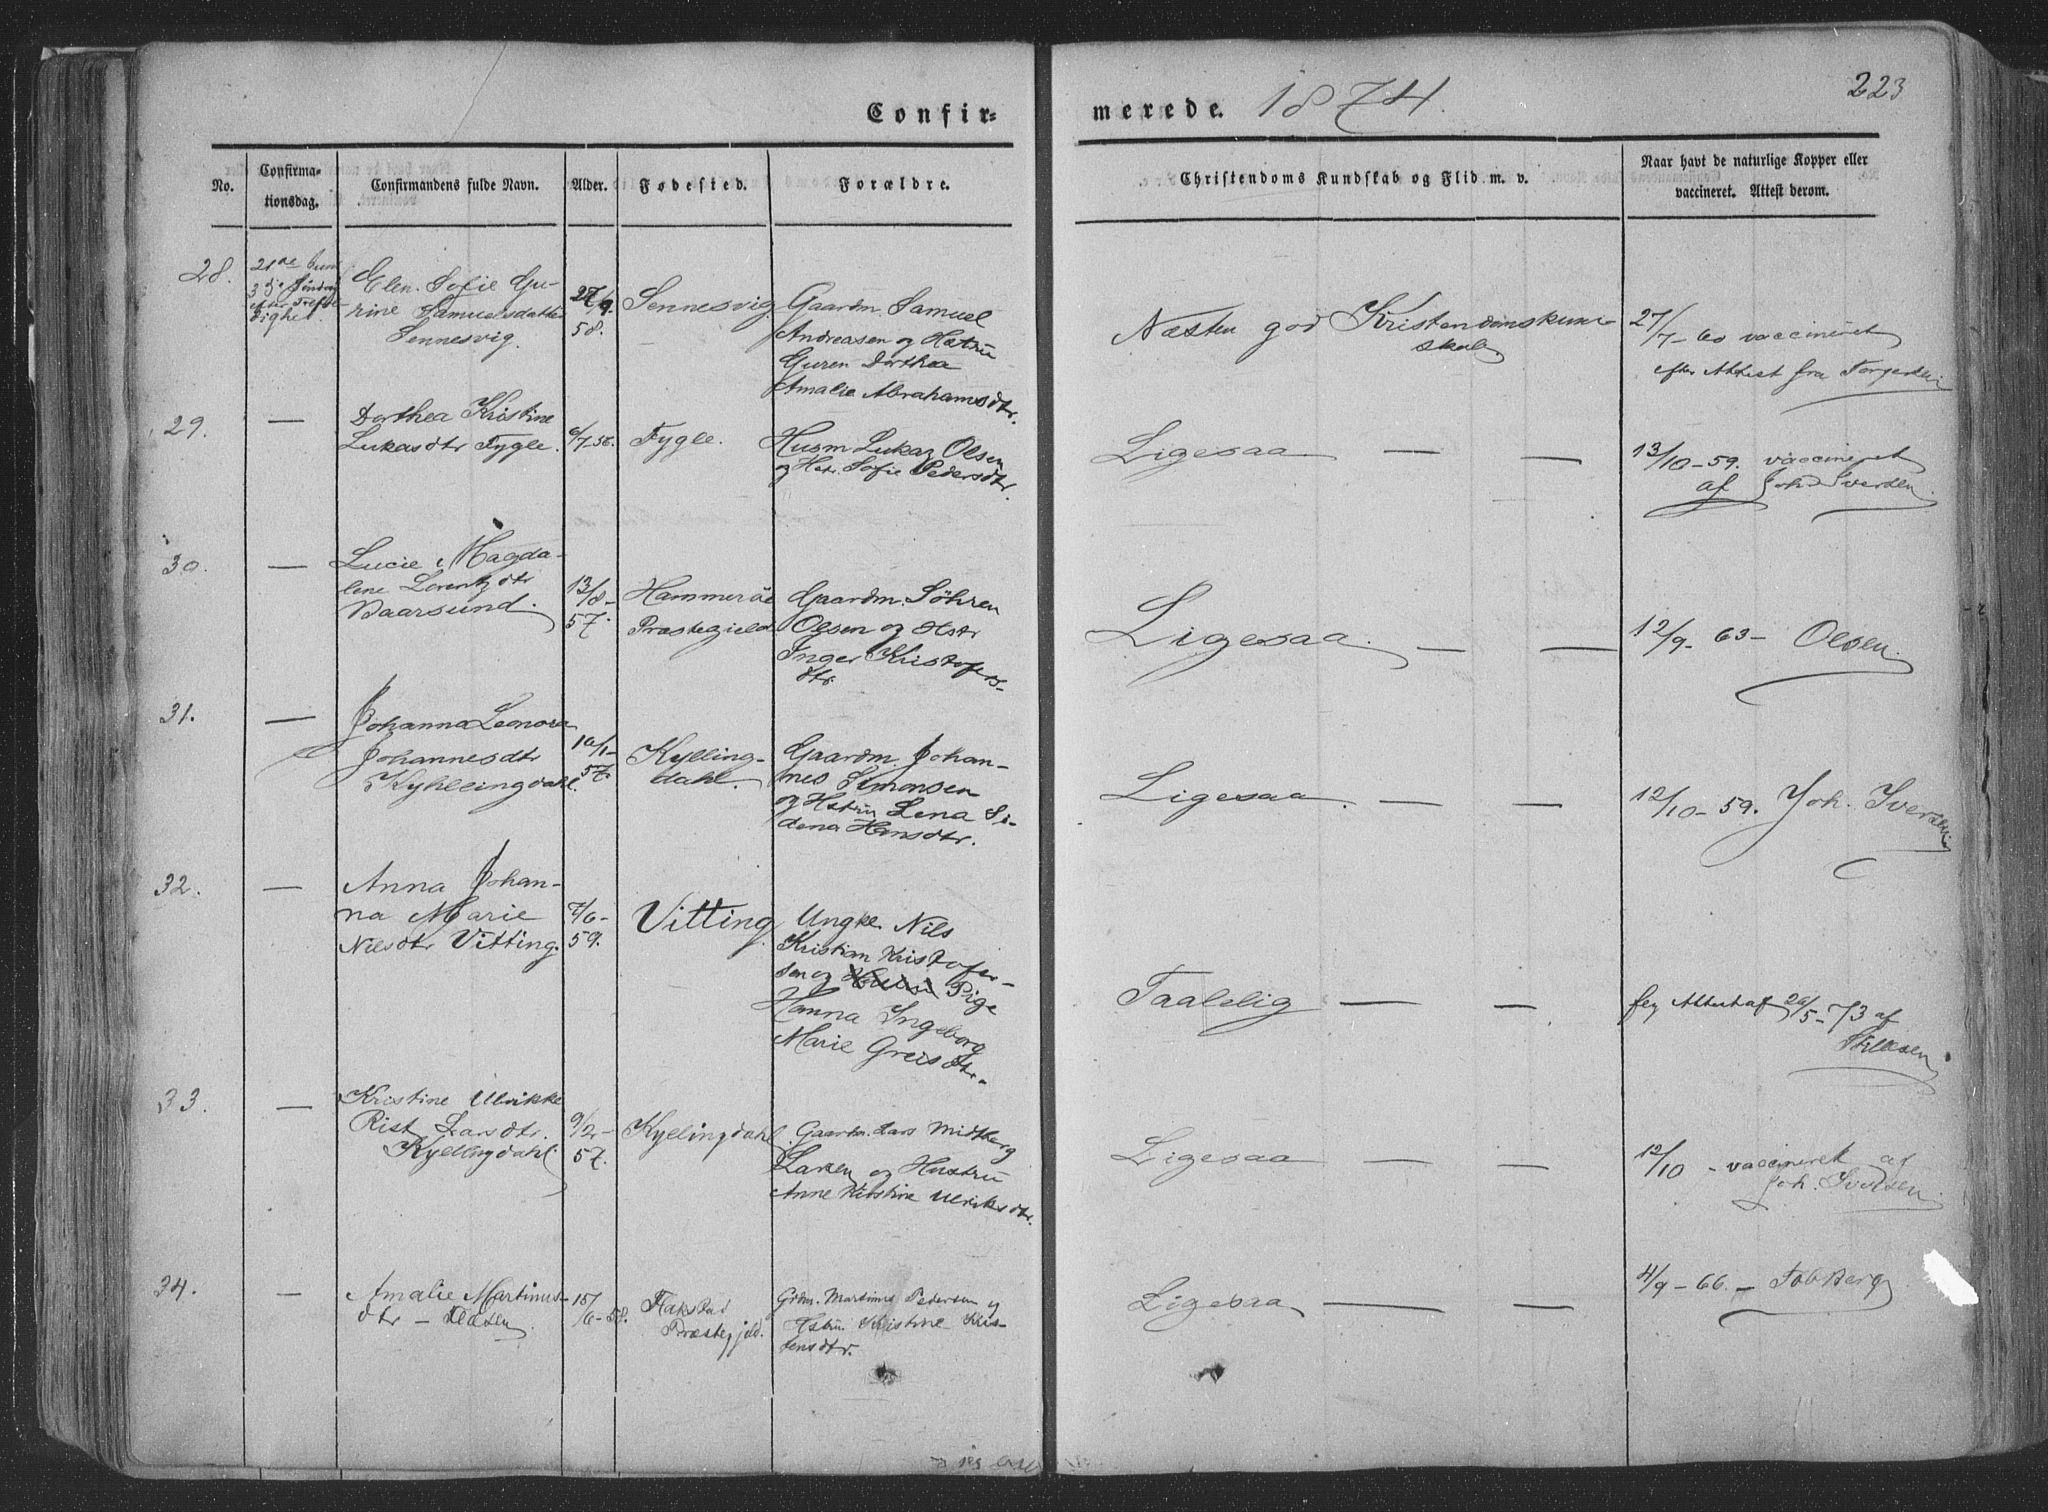 223
Confir-
merede. 1874.
No.
Confirma-
tionsdag.
Confirmandens fulde Navn.
Alder.
Fødested.
Forældre.
Christendoms Kundskab og Flid m. v.
Naar havt de naturlige Kopper eller
vaccineret. Attest derom.
28.
21de Juni
3die Søndag
efter Trefol-
dighed.
Elen Sofie Gu-
rine Samuelsdatter
Sennesvig.
27/9
58.
Sennesvig
Gaardm. Samuel
Andreasen og Hstru
Guren Dorthea
Amalie Abrahamsdtr.
Næsten god Kristendomskund-
skab
27/7-60 vaccineret
efter Attest fra
29.
—
Dorthea Kristine
Lukasdtr Fygle.
6/7 58.
Fygle.
Husm Lukas Olsen
og Hst. Sofie Pedersdtr.
Ligesaa — —
13/10-59. vaccineret
af Joh. Iversen.
30.
—
Lucie Magda-
lene Lorentzdtr
Vaarsund.
13/8-
57.
Hammerøe
Præstegield
Gaardm. Söhren
Olsen og Hstr
Inger Kristofers-
dtr.
Ligesaa. — —
12/9-63- Olsen.
31.
—
Johanna Leonora
Johannesdtr
Kyhllingdahl.
10/1-
57.
Kylling-
dahl.
Gaardm. Johan-
nes Simonsen
og Hstru Lena Se-
dena Hansdtr.
Ligesaa. — —
12/10-59. Joh. Iversen
32.
—
Anna Johan-
na Marie
Nilsdtr Vitting.
7/6-
59.
Vitting
Ungke. Nils
Kristian Kristofer-
sen og Pige
Hanna Ingeborg
Marie Greisdtr.
Taalelig — —
Attest af 20/5-73 af
33.
—
Kristine Ulrikke
Rist Larsdtr.
Kyllingdahl.
9/2-
57.
Kyllingdahl
Gaardm. Lars Midtberg
Larsen og Hustru
Anne Kirstine Ulriksdtr.
Ligesaa — —
12/10 - vaccineret af
Joh. Iversen
34.
—
Amalie Martinus-
dtr —
15/6-58.
Flakstad
Præstegjeld.
Grdm. Martinus Pedersen og
Hstru Kristine Kris-
tensdtr.
Ligesaa — —
4/9-66. —